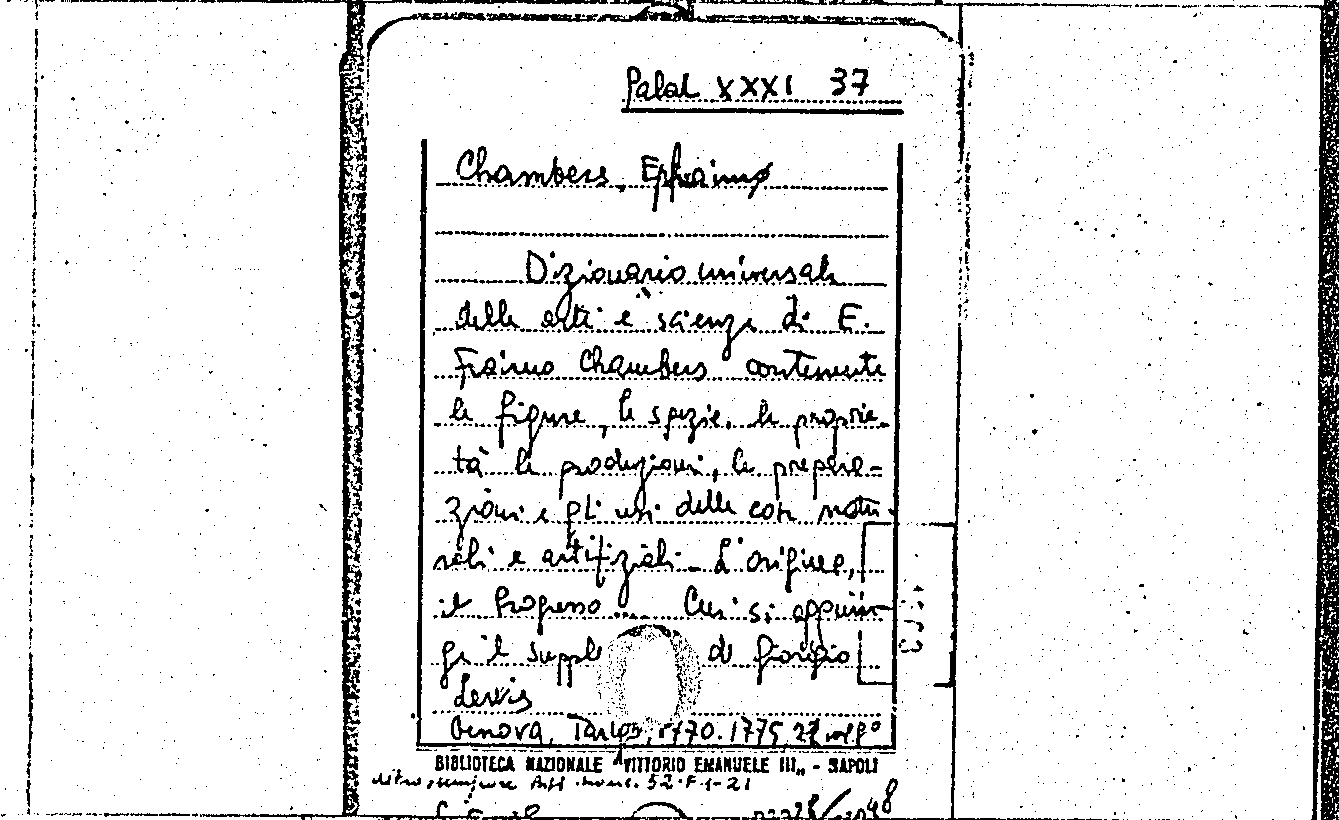 Palat XXXI 37
Chambers, Efraimo
Dizionario universale
delle arti e scienze di E.
Fraimo Chambers contenente
le figure, le spezie, le proprie-
tà le produzioni, le prepara-
zioni e gli usi delle cose natu-
rali e artifiziali - L'origine,
il Progresso... Cui si aggiun-
ge il supple di Giorgio
Lewis
Genova, 1770.1775, 21 vol
BIBLIOTECA NAZIONALE "VITTORIO EMANUELE III" - NAPOLI
52.F.1-21